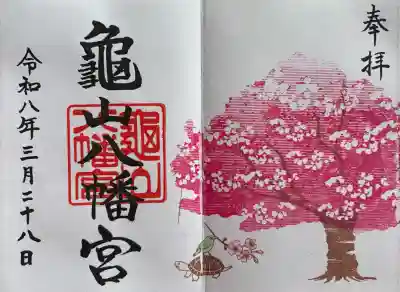 奉拝
龜山八幡宮
龜山八幡宮
令和八年三月二十八日